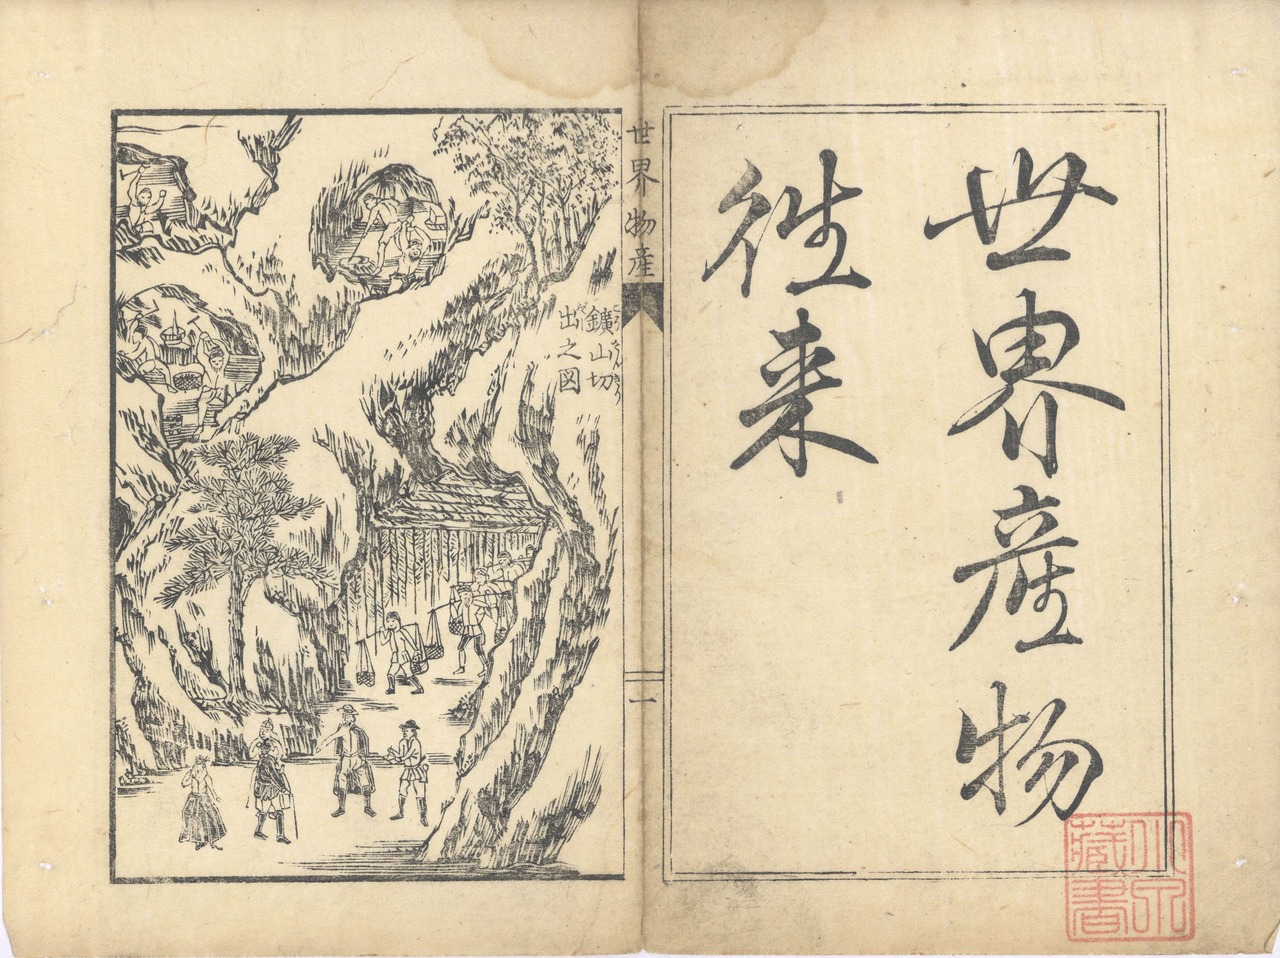 世界産物
往来
世界物産
一
鑛山切
出之図
藏書